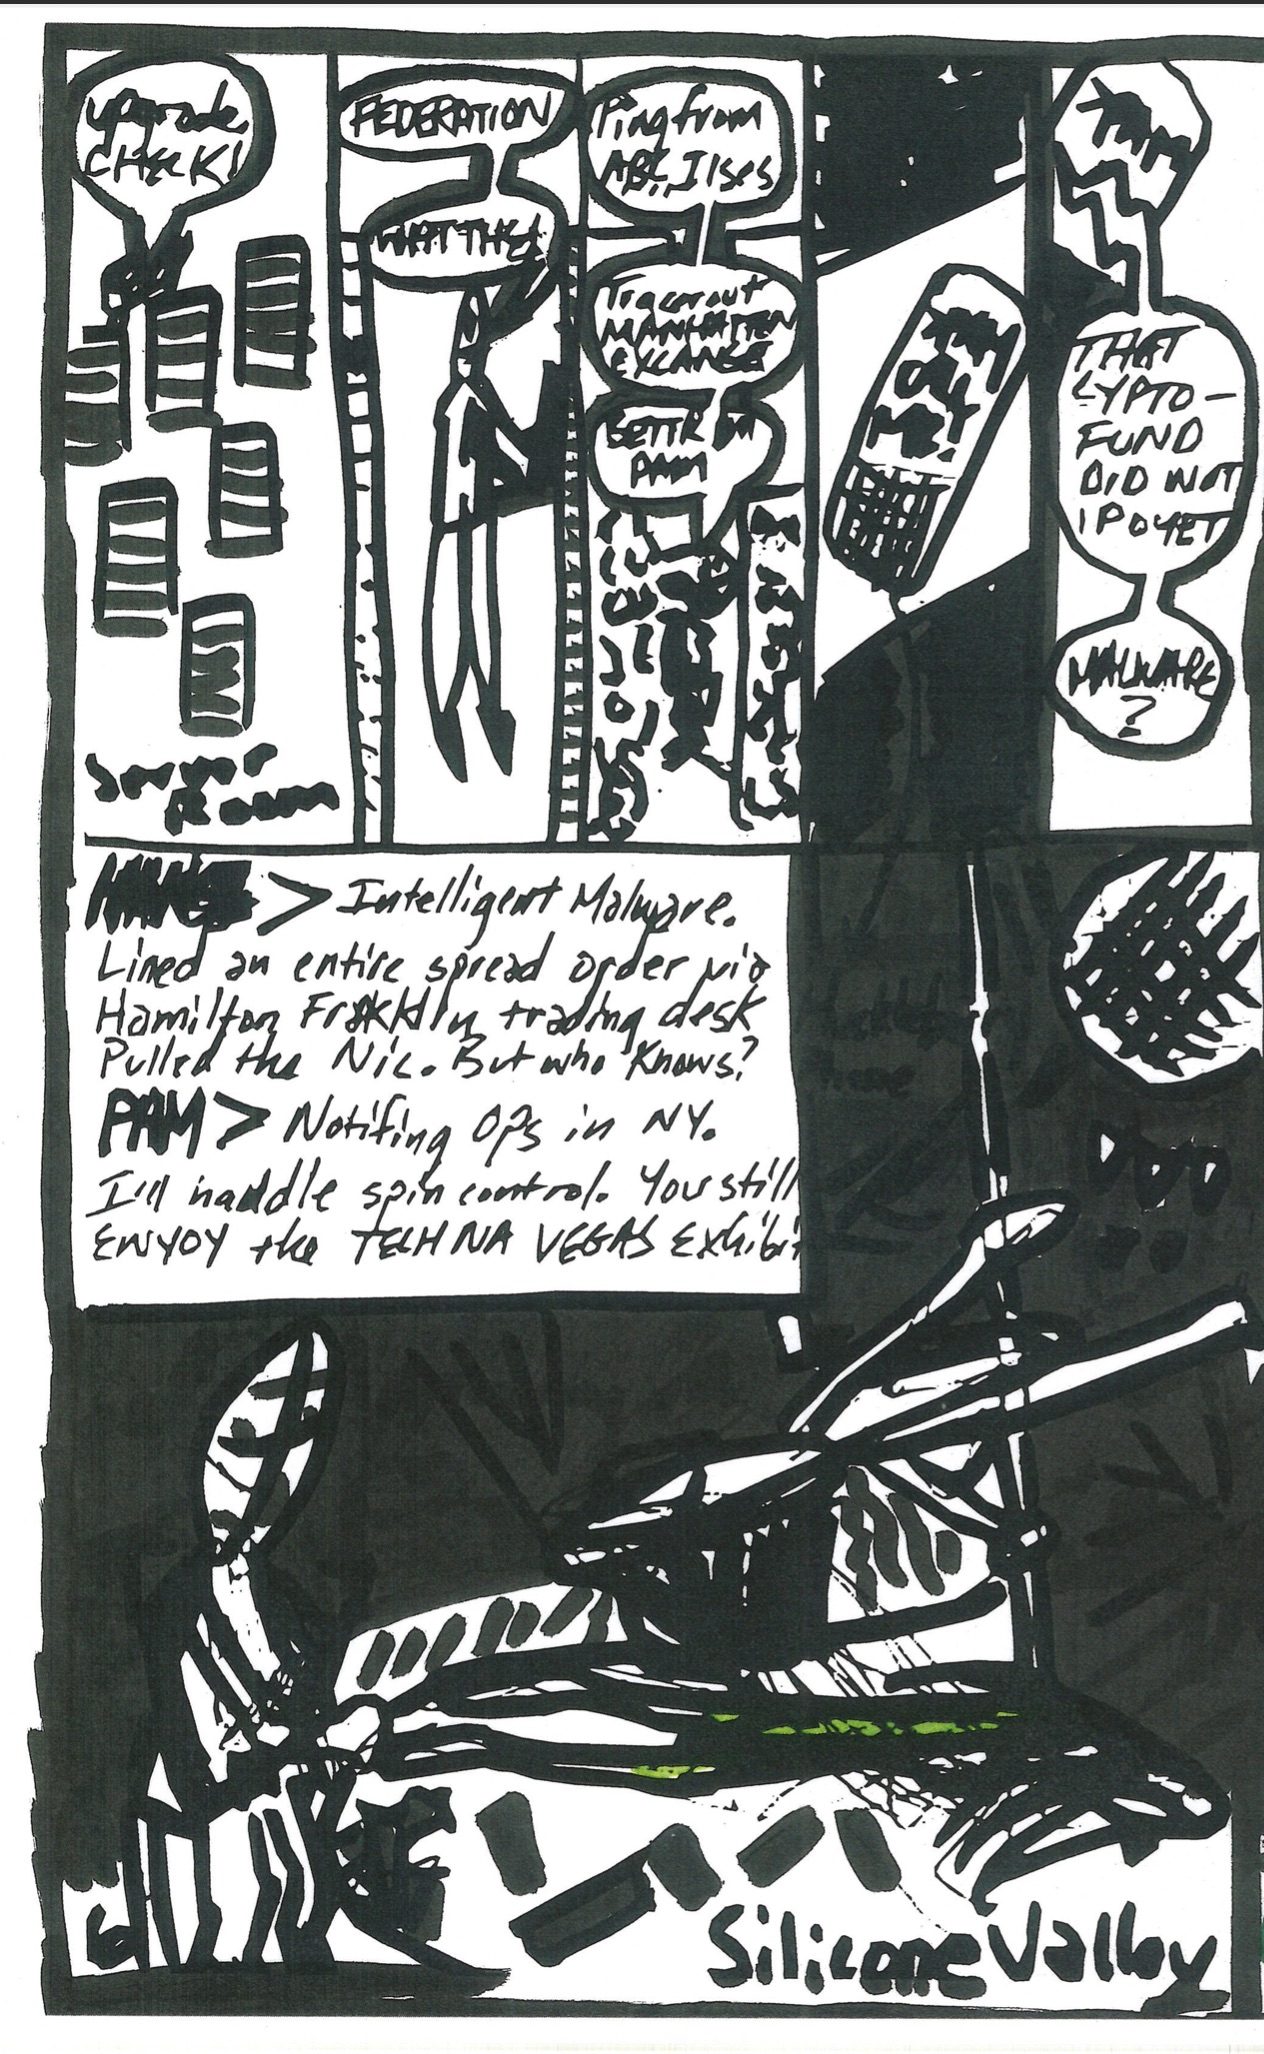 upgrade
CHECK!
Server
Room
FEDERATION
WHAT THE!
Ping from
ABC, ILSES
Tracerout
MANHATTEN
EXCANGE
GETTR
PAM
PAM
OUT
MET
PAM
THAT
CYPTO-
FUND
DID NOT
IPO YET
MALWARE
?
> Intelligent Malware.
Lined an entire spread order via
Hamilton trading desk
Pulled the Nic. But who knows?
PAM> Notifing Ops in NY.
I'll haddle spin control. You still
ENYOY the TECHNA VEGAS Exhibit
Silicone Valley